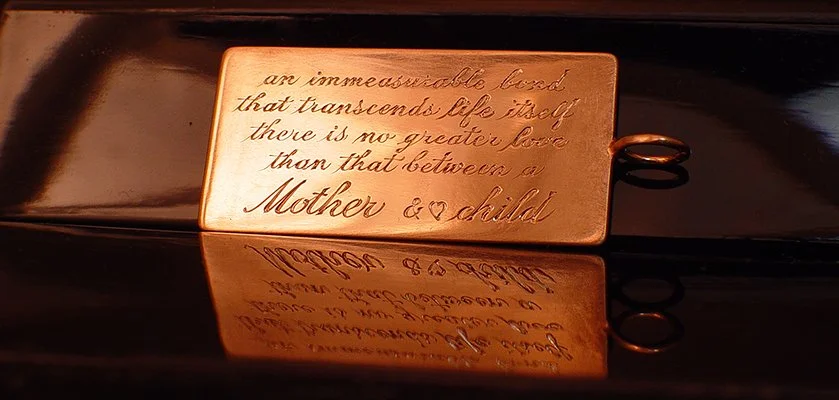 an immeasurable bond
that transcends life itself
there is no greater love
than that between a
Mother & ♡ child